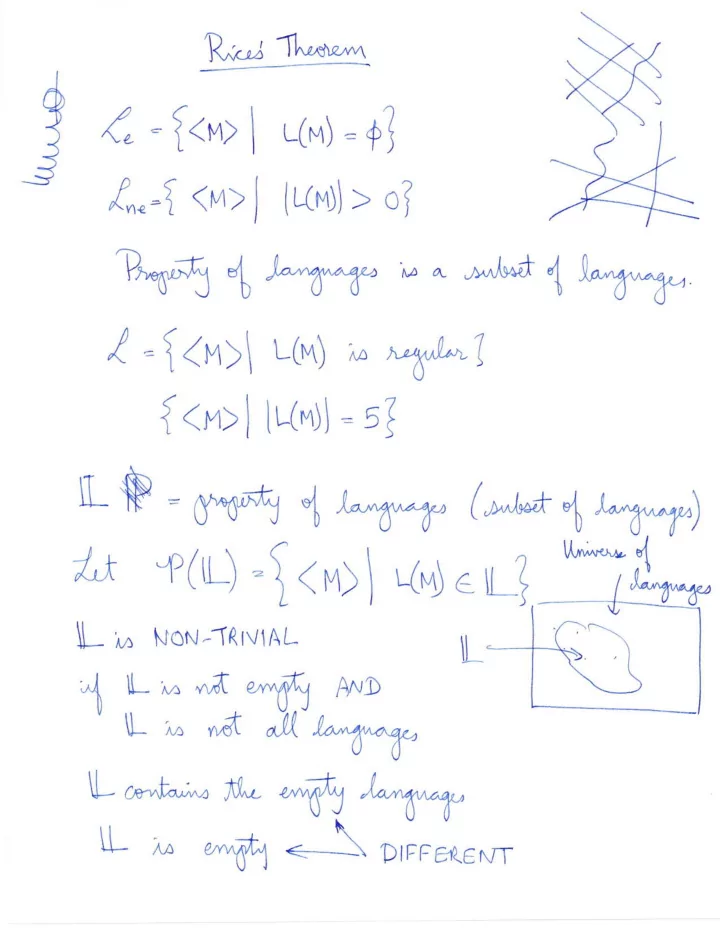 Rice's Theorem
Lₑ = {<M> | L(M) = ϕ}
Lₙₑ = { <M> | |L(M)| > 0}
Property of languages is a subset of languages.
L = {<M> | L(M) is regular}
{<M> | |L(M)| = 5}
𝕃 = property of languages (subset of languages)
Let P(𝕃) = { <M> | L(M) ∈ 𝕃}
Universe of
languages
𝕃 is NON-TRIVIAL
𝕃
if 𝕃 is not empty AND
𝕃 is not all languages
𝕃 contains the empty languages
𝕃 is empty
DIFFERENT